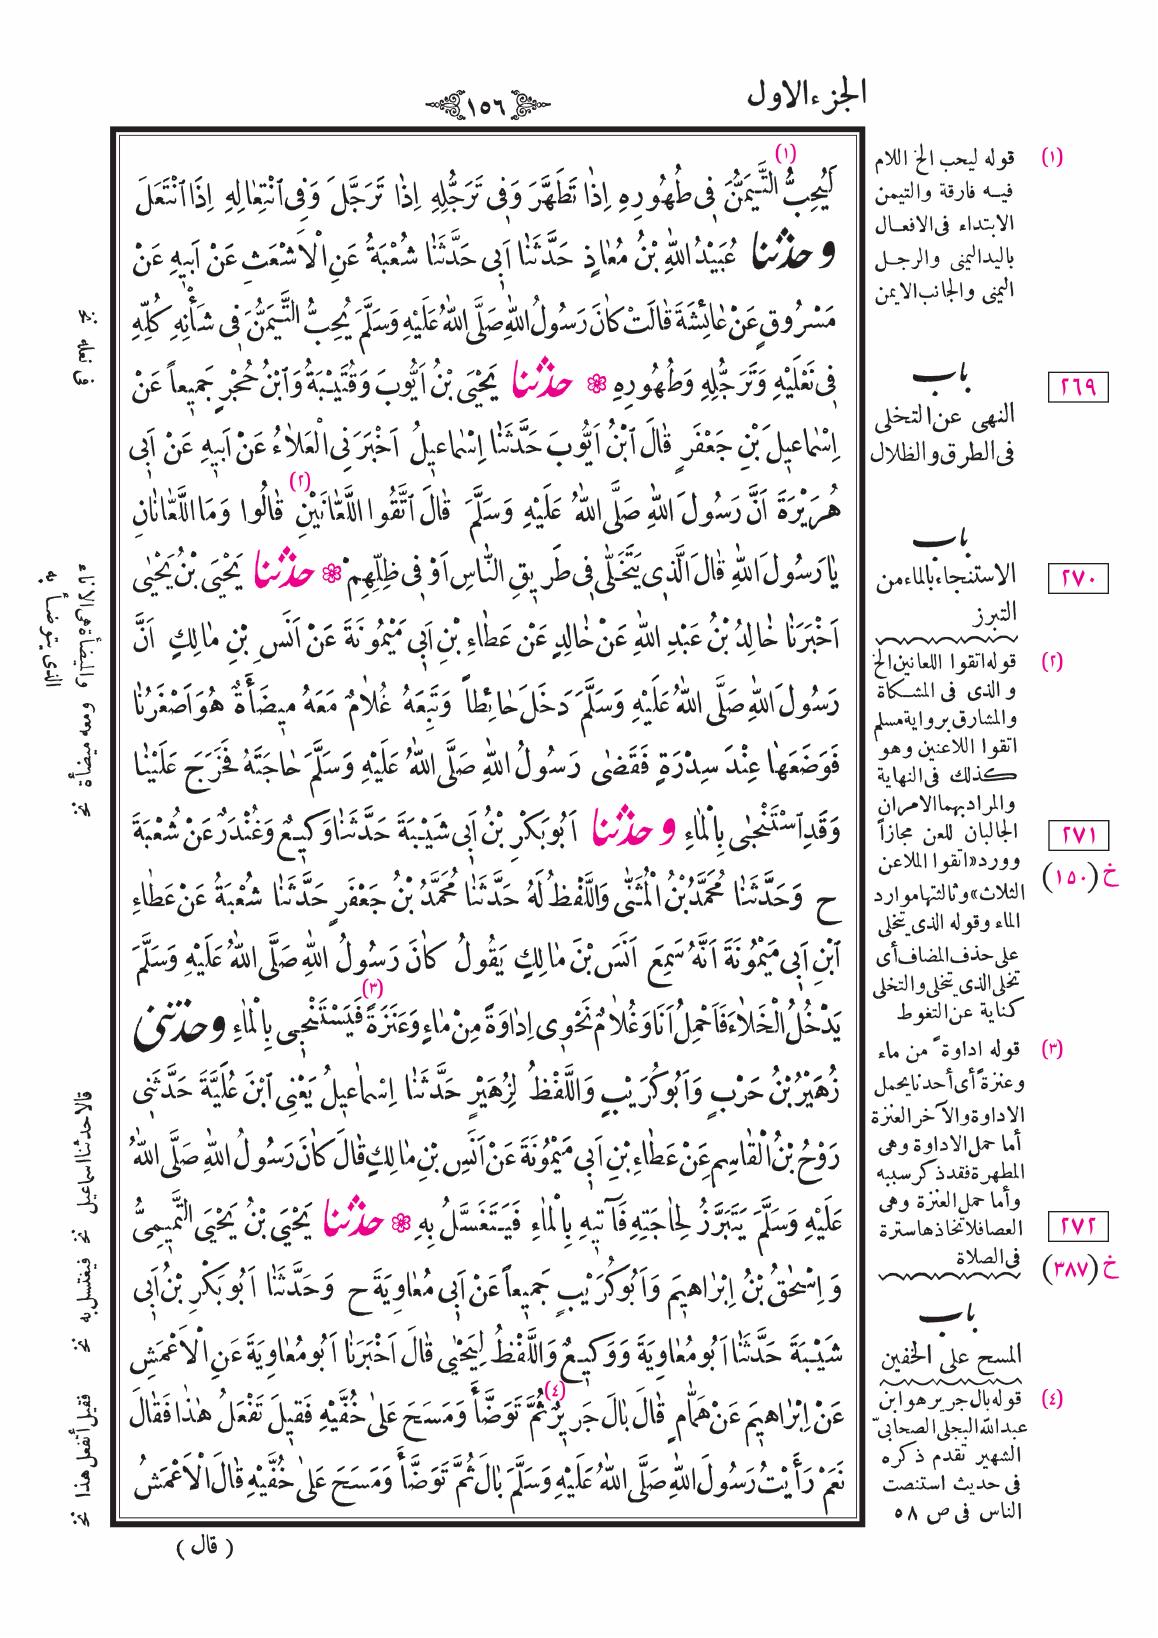 الجزء الاول
١٥٦
لَيُحِبُّ التَّيَمُّنَ فِى طُهُورِهِ اِذَا تَطَهَّرَ وَفِى تَرَجُّلِهِ اِذَا تَرَجَّلَ وَفِى ٱنْتِعَالِهِ اِذَا ٱنْتَعَلَ (١)
وحدثنا عُبَيْدُ اللّٰهِ بْنُ مُعَاذٍ حَدَّثَنَا اَبِى حَدَّثَنَا شُعْبَةُ عَنِ الْاَشْعَثِ عَنْ اَبِيهِ عَنْ
مَسْرُوقٍ عَنْ عَائِشَةَ قَالَتْ كَانَ رَسُولُ اللّٰهِ صَلَّى اللّٰهُ عَلَيْهِ وَسَلَّمَ يُحِبُّ التَّيَمُّنَ فِى شَأْنِهِ كُلِّهِ
فِى نَعْلَيْهِ وَتَرَجُّلِهِ وَطُهُورِهِ ❁ حدثنا يَحْيَى بْنُ اَيُّوبَ وَقُتَيْبَةُ وَٱبْنُ حُجْرٍ جَمِيعاً عَنْ
اِسْمَاعِيلَ بْنِ جَعْفَرٍ قَالَ ٱبْنُ اَيُّوبَ حَدَّثَنَا اِسْمَاعِيلُ اَخْبَرَنِى الْعَلَاءُ عَنْ اَبِيهِ عَنْ اَبِى
هُرَيْرَةَ اَنَّ رَسُولَ اللّٰهِ صَلَّى اللّٰهُ عَلَيْهِ وَسَلَّمَ قَالَ ٱتَّقُوا اللَّعَّانَيْنِ (٢) قَالُوا وَمَا اللَّعَّانَانِ
يَا رَسُولَ اللّٰهِ قَالَ الَّذِى يَتَخَلَّى فِى طَرِيقِ النَّاسِ اَوْ فِى ظِلِّهِمْ ❁ حدثنا يَحْيَى بْنُ يَحْيَى
اَخْبَرَنَا خَالِدُ بْنُ عَبْدِ اللّٰهِ عَنْ خَالِدٍ عَنْ عَطَاءِ بْنِ اَبِى مَيْمُونَةَ عَنْ اَنَسِ بْنِ مَالِكٍ اَنَّ
رَسُولَ اللّٰهِ صَلَّى اللّٰهُ عَلَيْهِ وَسَلَّمَ دَخَلَ حَائِطاً وَتَبِعَهُ غُلَامٌ مَعَهُ مِيضَأَةٌ هُوَ اَصْغَرُنَا
فَوَضَعَهَا عِنْدَ سِدْرَةٍ فَقَضَى رَسُولُ اللّٰهِ صَلَّى اللّٰهُ عَلَيْهِ وَسَلَّمَ حَاجَتَهُ فَخَرَجَ عَلَيْنَا
وَقَدِ ٱسْتَنْجَى بِالْمَاءِ وحدثنا اَبُو بَكْرِ بْنُ اَبِى شَيْبَةَ حَدَّثَنَا وَكِيعٌ وَغُنْدَرٌ عَنْ شُعْبَةَ
ح وَحَدَّثَنَا مُحَمَّدُ بْنُ الْمُثَنَّى وَاللَّفْظُ لَهُ حَدَّثَنَا مُحَمَّدُ بْنُ جَعْفَرٍ حَدَّثَنَا شُعْبَةُ عَنْ عَطَاءِ
ٱبْنِ اَبِى مَيْمُونَةَ اَنَّهُ سَمِعَ اَنَسَ بْنَ مَالِكٍ يَقُولُ كَانَ رَسُولُ اللّٰهِ صَلَّى اللّٰهُ عَلَيْهِ وَسَلَّمَ
يَدْخُلُ الْخَلَاءَ فَاَحْمِلُ اَنَا وَغُلَامٌ نَحْوِى اِدَاوَةً مِنْ مَاءٍ وَعَنَزَةً (٣) فَيَسْتَنْجِى بِالْمَاءِ وحدثنى
زُهَيْرُ بْنُ حَرْبٍ وَاَبُو كُرَيْبٍ وَاللَّفْظُ لِزُهَيْرٍ حَدَّثَنَا اِسْمَاعِيلُ يَعْنِى ٱبْنَ عُلَيَّةَ حَدَّثَنِى
رَوْحُ بْنُ الْقَاسِمِ عَنْ عَطَاءِ بْنِ اَبِى مَيْمُونَةَ عَنْ اَنَسِ بْنِ مَالِكٍ قَالَ كَانَ رَسُولُ اللّٰهِ صَلَّى اللّٰهُ
عَلَيْهِ وَسَلَّمَ يَتَبَرَّزُ لِحَاجَتِهِ فَآتِيهِ بِالْمَاءِ فَيَتَغَسَّلُ بِهِ ❁ حدثنا يَحْيَى بْنُ يَحْيَى التَّمِيمِىُّ
وَاِسْحٰقُ بْنُ اِبْرَاهِيمَ وَاَبُو كُرَيْبٍ جَمِيعاً عَنْ اَبِى مُعَاوِيَةَ ح وَحَدَّثَنَا اَبُو بَكْرِ بْنُ اَبِى
شَيْبَةَ حَدَّثَنَا اَبُو مُعَاوِيَةَ وَوَكِيعٌ وَاللَّفْظُ لِيَحْيَى قَالَ اَخْبَرَنَا اَبُو مُعَاوِيَةَ عَنِ الْاَعْمَشِ
عَنْ اِبْرَاهِيمَ عَنْ هَمَّامٍ قَالَ بَالَ جَرِيرٌ (٤) ثُمَّ تَوَضَّأَ وَمَسَحَ عَلَى خُفَّيْهِ فَقِيلَ تَفْعَلُ هٰذَا فَقَالَ
نَعَمْ رَأَيْتُ رَسُولَ اللّٰهِ صَلَّى اللّٰهُ عَلَيْهِ وَسَلَّمَ بَالَ ثُمَّ تَوَضَّأَ وَمَسَحَ عَلَى خُفَّيْهِ قَالَ الْاَعْمَشُ
( قال )
(١) قوله ليحب الخ اللام
فيـه فارقة والتيمن
الابتداء فى الافعـال
باليد اليمنى والرجـل
اليمنى والجانب الايمن
٢٦٩
باب
النهى عن التخلى
فى الطرق والظلال
٢٧٠
باب
الاستنجاء بالماء من
التبرز
(٢) قوله اتقوا اللعانين الخ
والذى فى المشكاة
والمشارق برواية مسلم
اتقوا اللاعنين وهو
كذلك فى النهاية
والمراد بهما الامران
الجالبان للعن مجازاً
وورد «اتقوا الملاعن
الثلاث» وثالثتها موارد
الماء وقوله الذى يتخلى
على حذف المضاف أى
تخلى الذى يتخلى والتخلى
كناية عن التغوط
٢٧١
خ (١٥٠)
(٣) قوله اداوةً من ماء
وعنزةً أى أحدنا يحمل
الاداوة والآخر العنزة
أما حمل الاداوة وهى
المطهرة فقد ذكر سببه
وأما حمل العنزة وهى
العصا فلاتخاذها سترة
فى الصلاة
٢٧٢
خ (٣٨٧)
باب
المسح على الخفين
(٤) قوله بال جرير هو ابن
عبد الله البجلى الصحابىّ
الشهير تقدم ذكره
فى حديث استنصت
الناس فى ص ٥٨
فى نعله نخ
ومعه ميضأة نخ
والميضأة هى الاناء
الذى يتوضأ به
قالا حدثنا اسماعيل نخ
فيغتسل به نخ
فقيل أتفعل هذا نخ